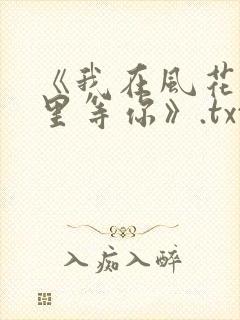 《我在風花
里等你》.tx
入痴入醉